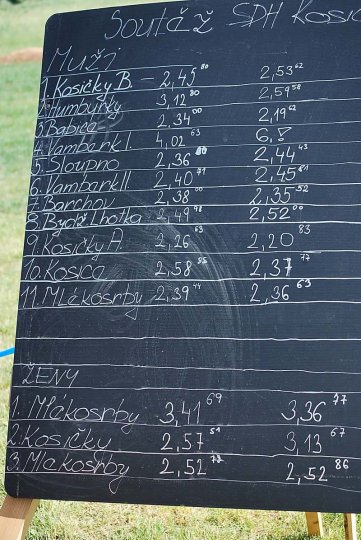 Soutěž SDH Kosic
Muži
1. Kosičky B. – 2,45 80 2,53 62
2. Humburky 3,12 80 2,59 58
3. Babice 2,34 00 2,19 62
4. Vamberk I. 4,02 63 6,!
5. Sloupno 2,36 2,44 43
6. Vamberk II. 2,40 71 2,45 81
7. Barchov 2,38 00 2,35 52
8. Byzhr. Lhotka 2,49 98 2,52 00
9. Kosičky A 2,26 63 2,20 83
10. Kosice 2,58 55 2,37 77
11. Mlékosrby 2,39 2,36 63
ŽENY
1. Mlékosrby 3,41 69 3,36 77
2. Kosičky 2,57 51 3,13 67
3. Mlékosrby 2,52 72 2,52 86